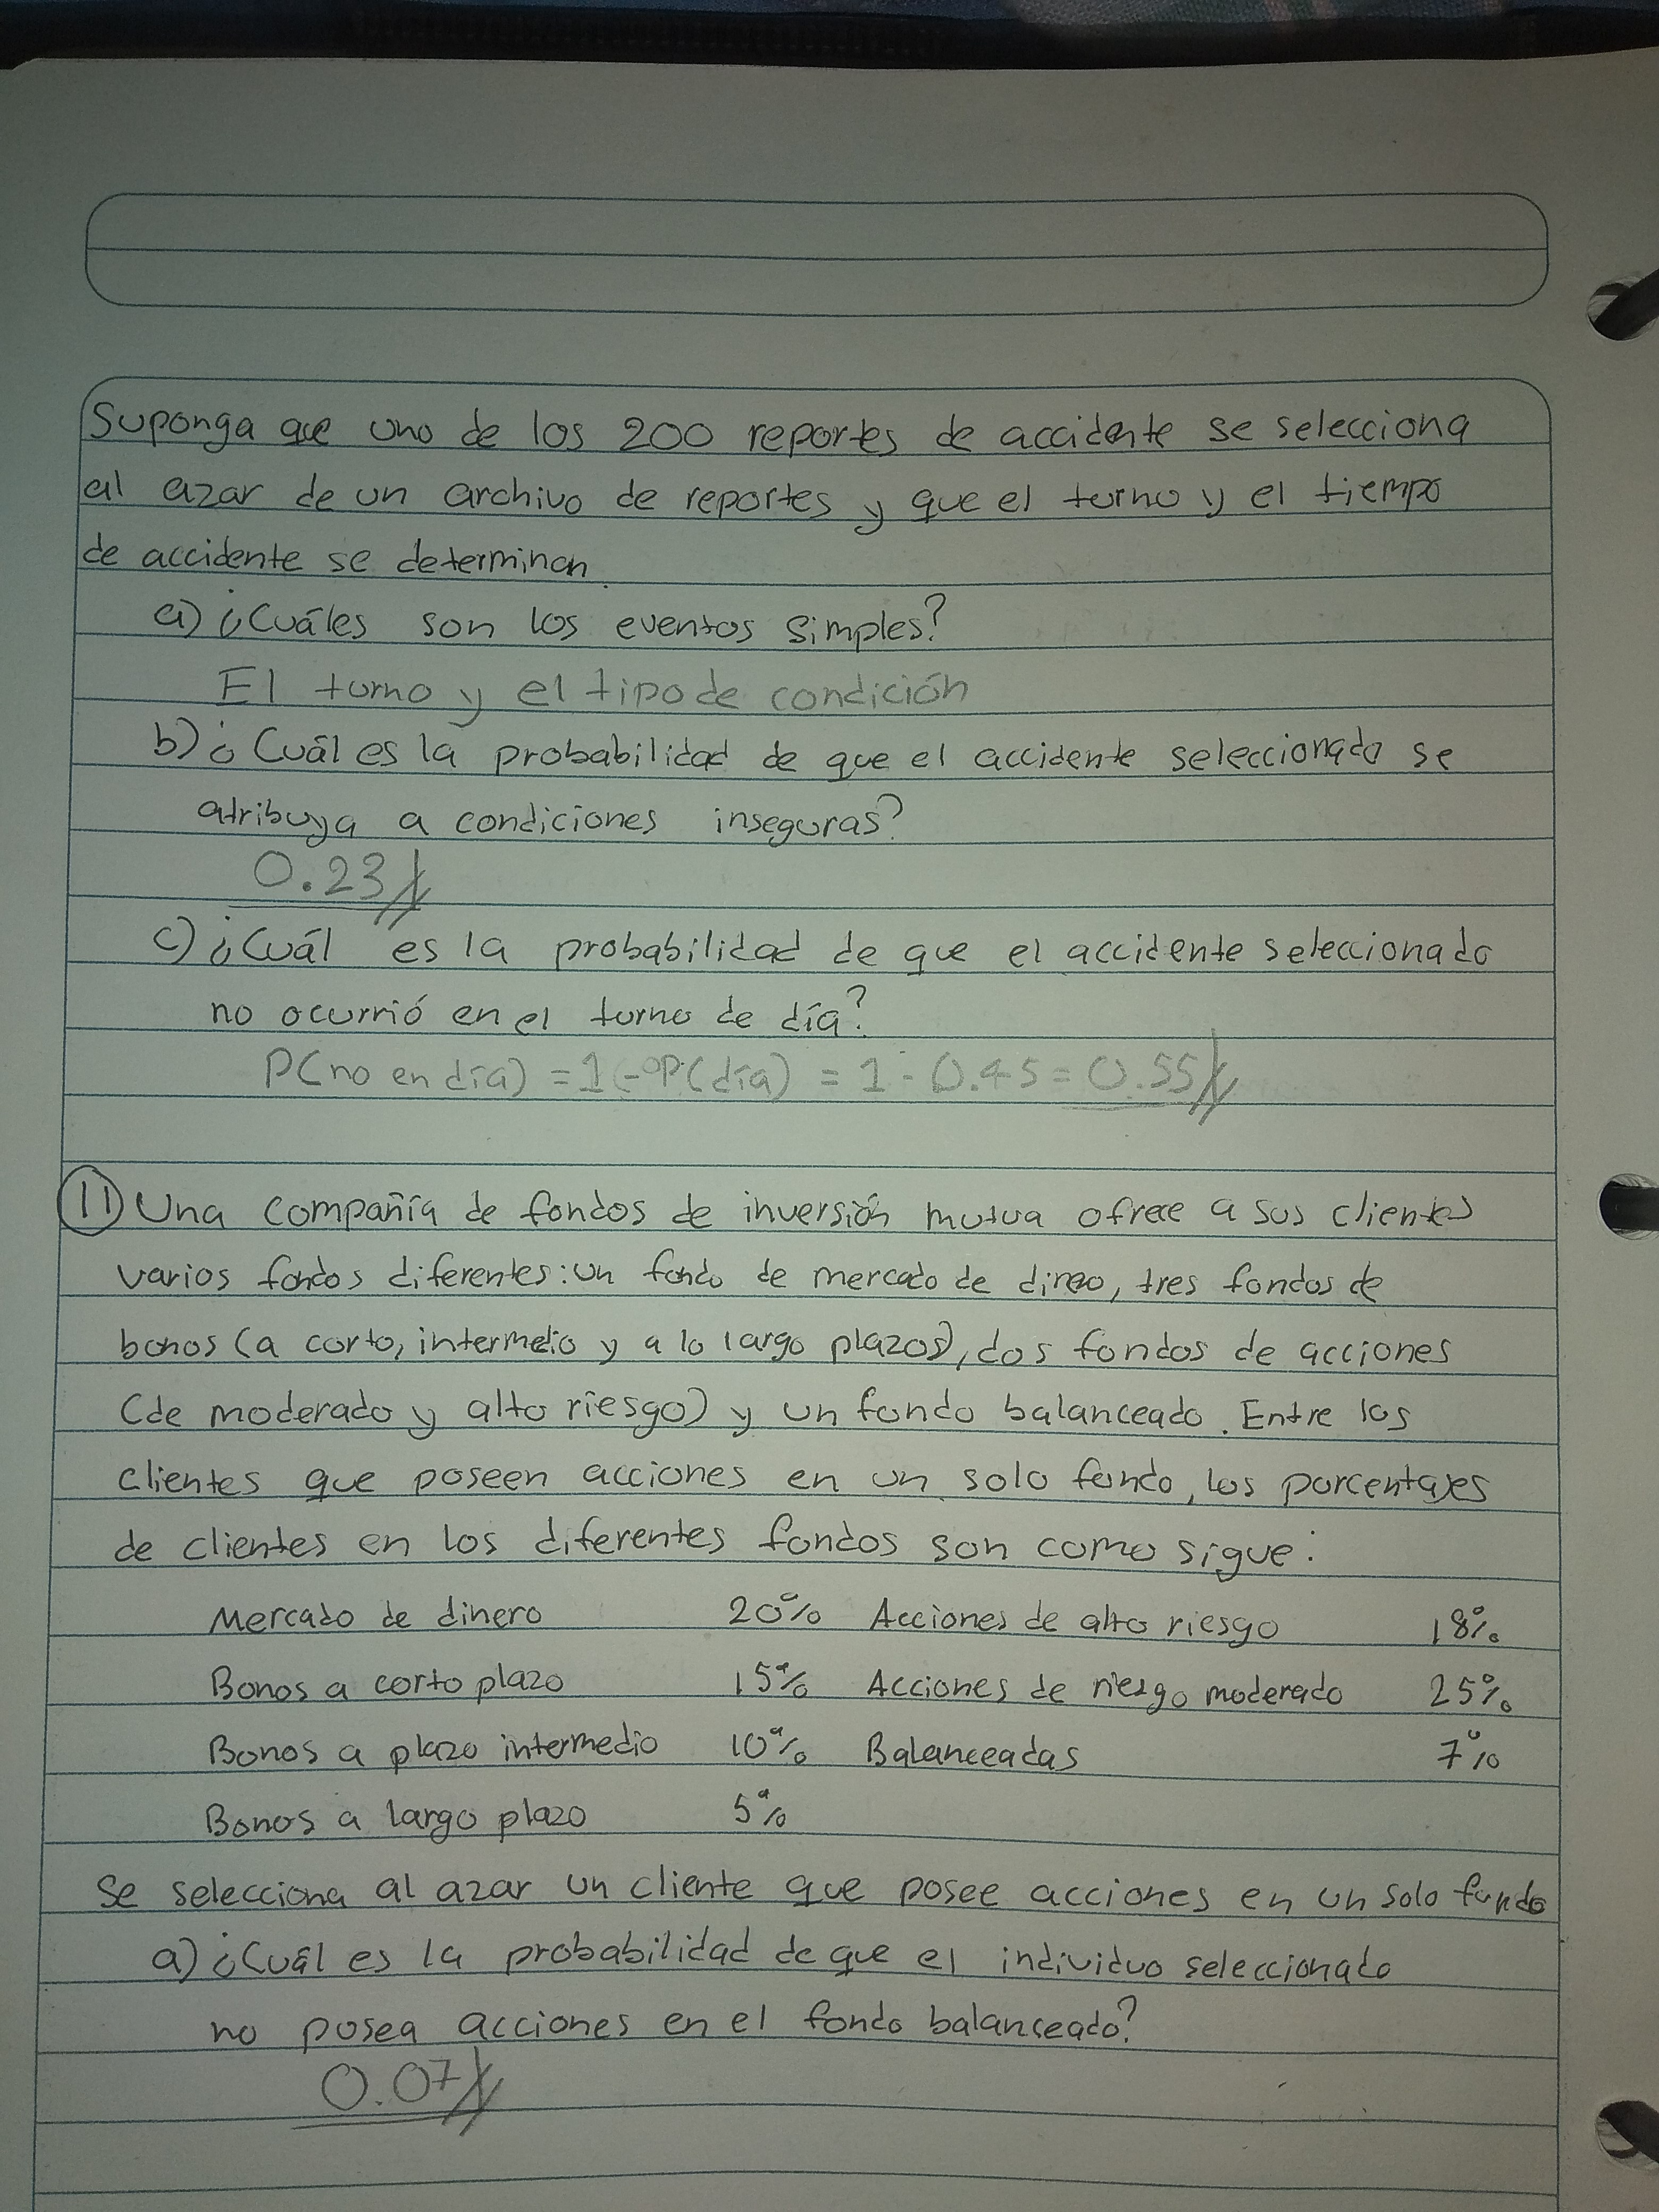 Suponga que uno de los 200 reportes de accidente se selecciona
al azar de un archivo de reportes y que el turno y el tiempo
de accidente se determinan.
a) ¿Cuáles son los eventos simples?
El turno y el tipo de condición
b) ¿Cuál es la probabilidad de que el accidente seleccionado se
atribuya a condiciones inseguras?
0.23
c) ¿Cuál es la probabilidad de que el accidente seleccionado
no ocurrió en el turno de día?
P(no en día) = 1 - P(día) = 1 - 0.45 = 0.55
11) Una compañía de fondos de inversión mutua ofrece a sus clientes
varios fondos diferentes: un fondo de mercado de dinero, tres fondos de
bonos (a corto, intermedio y a lo largo plazos), dos fondos de acciones
(de moderado y alto riesgo) y un fondo balanceado. Entre los
clientes que poseen acciones en un solo fondo, los porcentajes
de clientes en los diferentes fondos son como sigue:
Mercado de dinero 20% Acciones de alto riesgo 18%
Bonos a corto plazo 15% Acciones de riesgo moderado 25%
Bonos a plazo intermedio 10% Balanceadas 7%
Bonos a largo plazo 5%
Se selecciona al azar un cliente que posee acciones en un solo fondo
a) ¿Cuál es la probabilidad de que el individuo seleccionado
no posea acciones en el fondo balanceado?
0.07